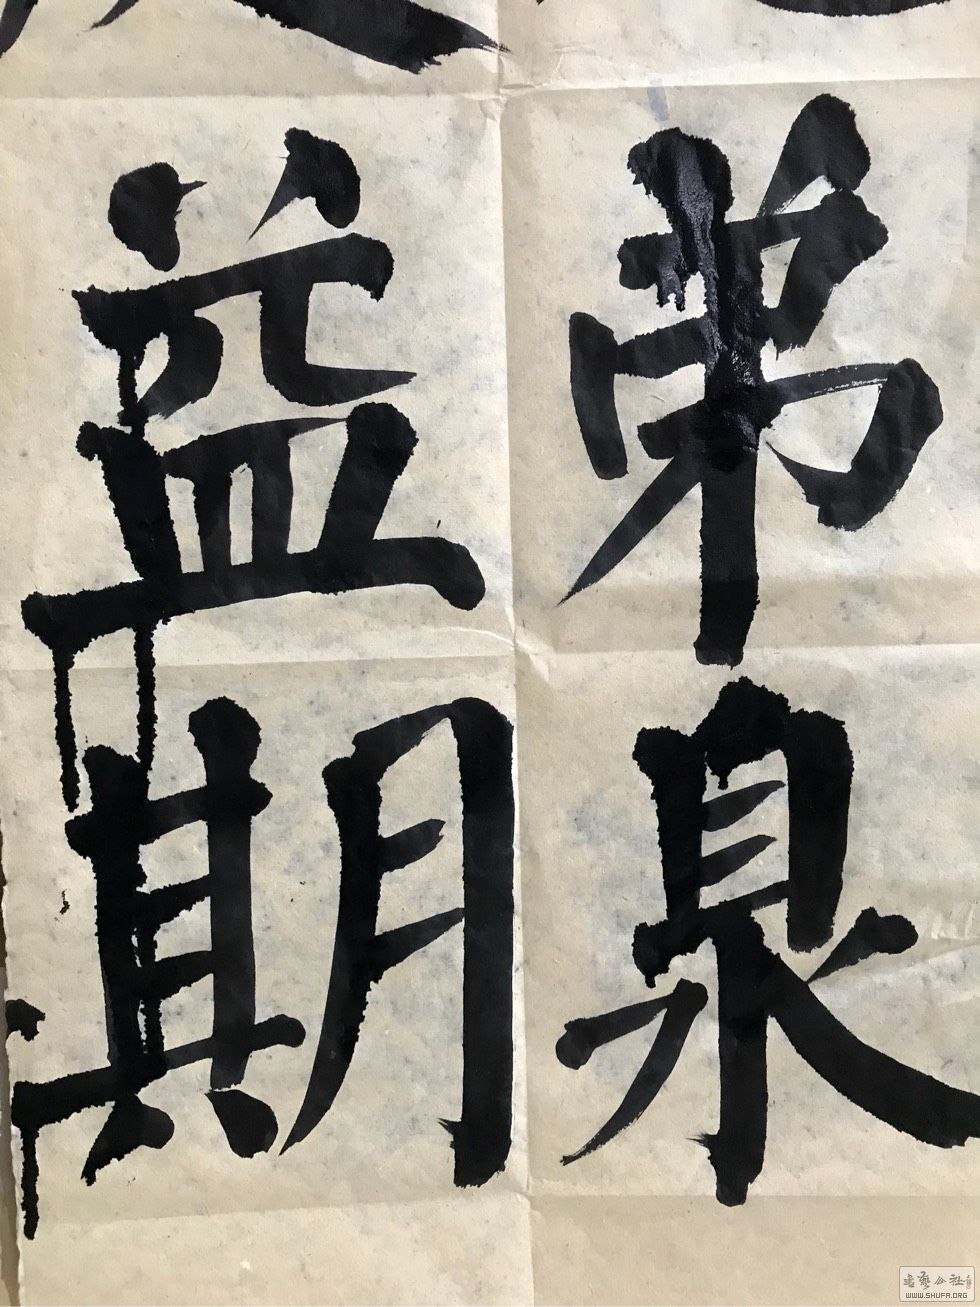 弟泉
益期
書藝公社
WWW.SHUFA.ORG